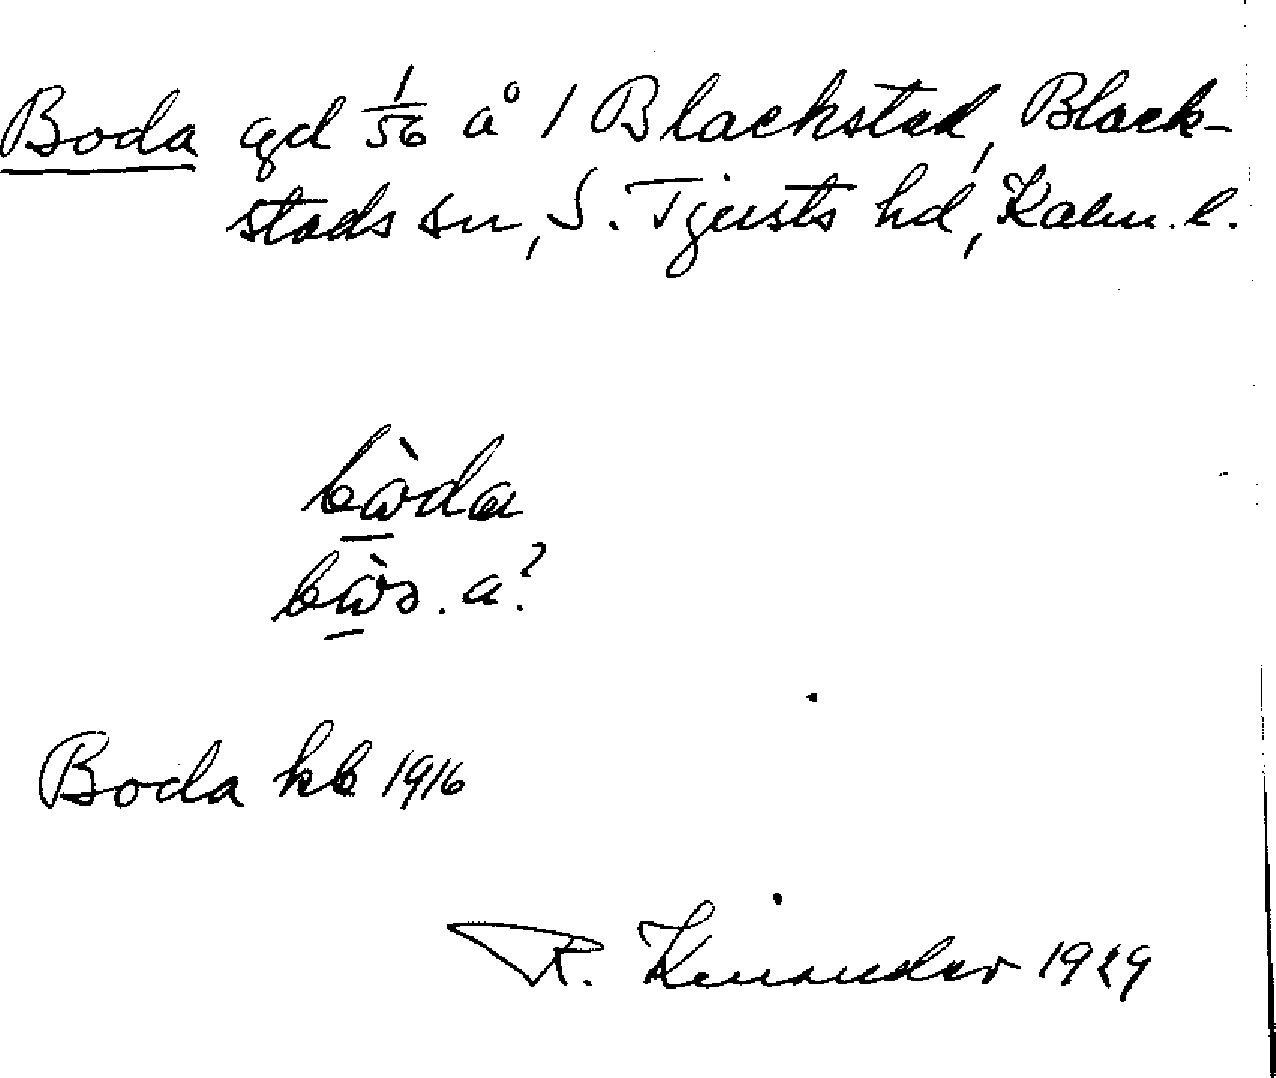 Boda gd 1/56 å 1 Blackstad, Black-
stads sn, S. Tjusts hd, Kalm. l.
bὼda
bὼs. a?
Boda kb 1916
R. Kinander 1929